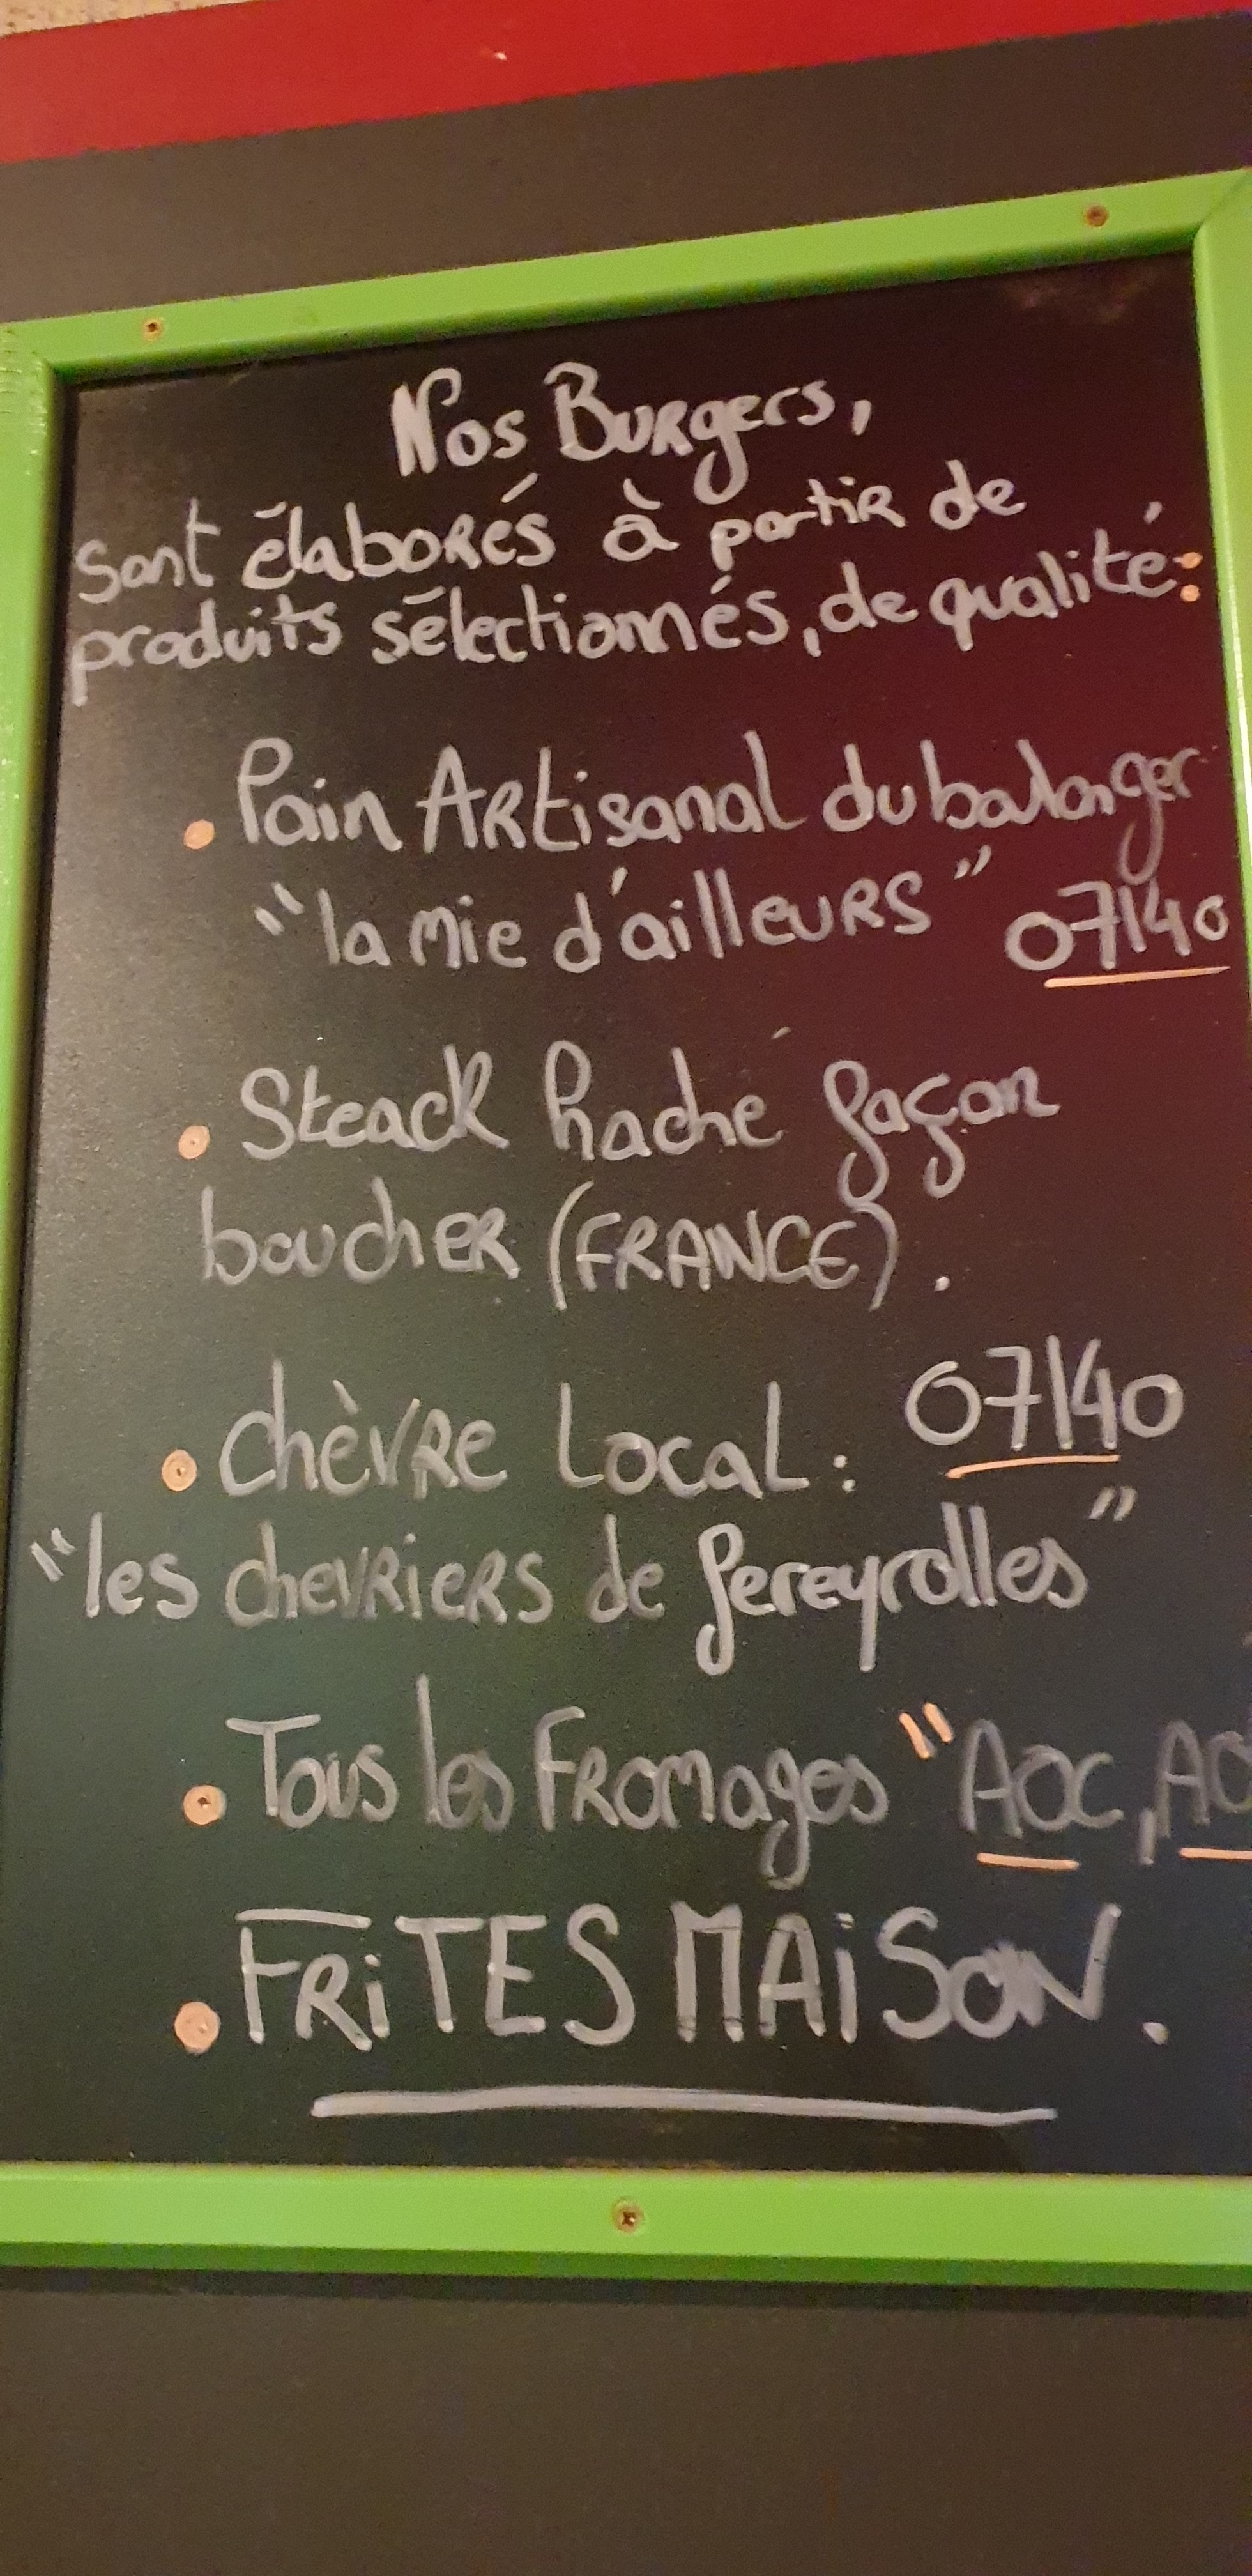 Nos Burgers,
sont élaborés à partir de
produits sélectionnés, de qualité:
. Pain Artisanal du boulanger
"la mie d'ailleurs" 07140
. Steack haché façon
boucher (FRANCE).
. Chèvre Local: 07140
"les chevriers de Pereyrolles"
. Tous les Fromages "AOC, AO
. FRiTES MAiSON.